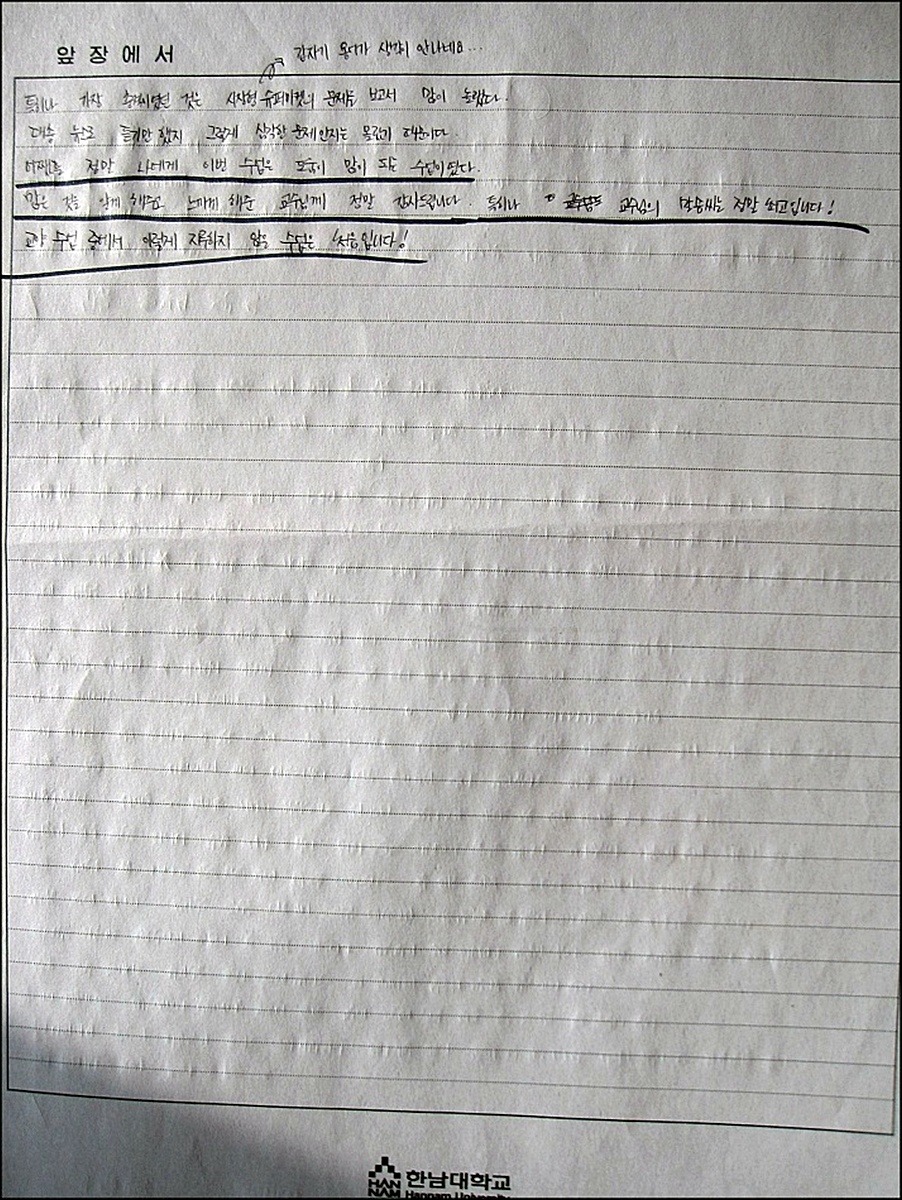 앞 장 에 서
갑자기 용어가 생각이 안나네요...
특히나 가장 충격이였던 것은 시식형 슈퍼마켓의 문제를 보고서 많이 놀랐다.
대충 뉴스로 듣기만 했지 그렇게 심각한 문제인지는 몰랐기 때문이다.
어쨌든 정말 나에게 이번 수업은 도움이 많이 되는 수업이였다.
많은 것을 알게 해주고 느끼게 해준 교수님께 정말 감사드립니다. 특히나 교수님의 말솜씨는 정말 최고입니다!
교양 수업 중에서 이렇게 지루하지 않은 수업은 처음입니다!
한남대학교
HAN NAM Hannam University